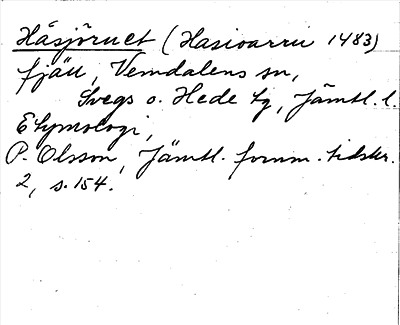 Håsjöruet (Hasioarru 1483)
fjäll, Vemdalens sn,
Svegs o. Hede tg, Jämtl. l.
Etymologi,
P. Olsson, Jämtl. fornm. tidskr.
2, s. 154.